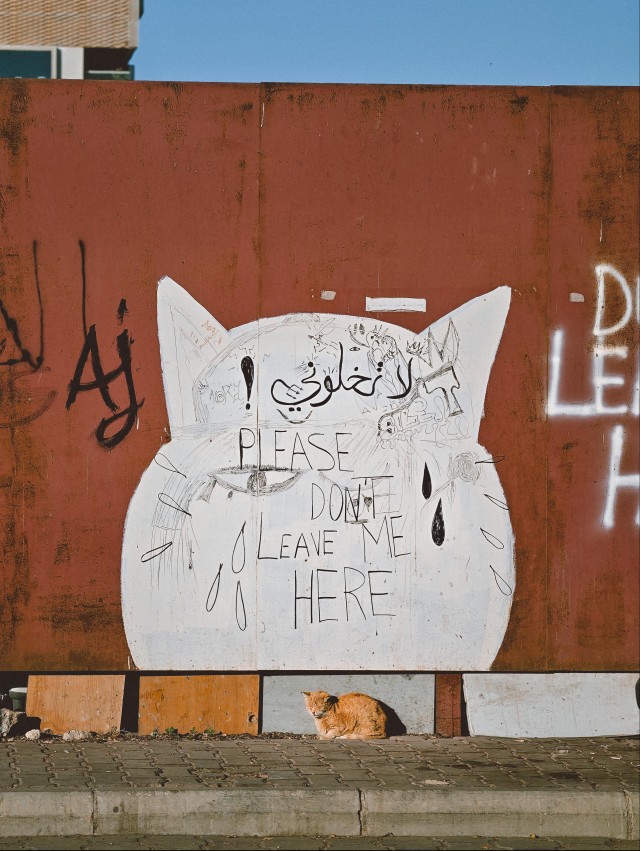 لا تخلوني !
PLEASE
DON'T
LEAVE ME
HERE
AJ
D
LE
H